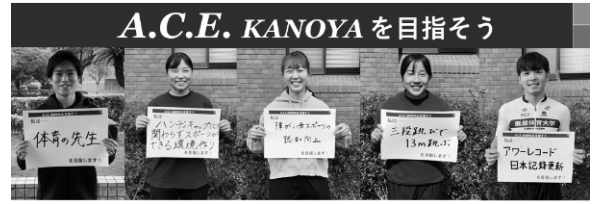 A.C.E. KANOYA を目指そう
私は
体育の先生
を目指します!
私は
ハンディキャップに
関わらずスポーツが
できる環境作り
を目指します!
私は
障がい者スポーツの
認知向上
を目指します!
私は
三段跳びで
13m跳ぶ
を目指します!
鹿屋体育大学
私は
アワーレコード
日本記録更新
を目指します!